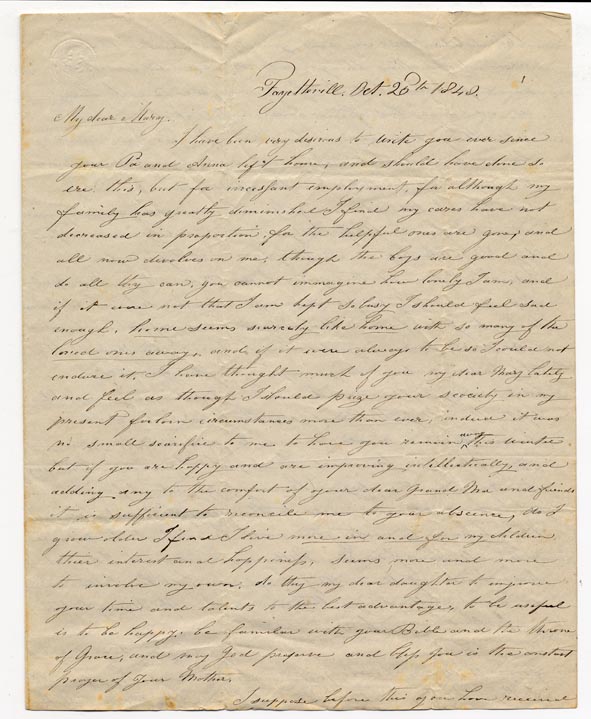 Fayetteville. Oct. 26th 1848.
My dear Mary.
I have been very desirous to write you ever since
your Pa and Anna left home, and should have done so
ere this, but for incessant employment, for although my
family has greatly diminished I find my cares have not
decreased in proportion. for the helpful ones are gone, and
all now devolves on me, though the boys are good and
do all they can, you cannot immagine how lonely I am, and
if it were not that I am kept so busy I should feel sad
enough, home seems scarcely like home with so many of the
loved ones away, and if it were always to be so I could not
endure it. I have thought much of you my dear Mary lately
and feel as though I should prize your society in my
present forlorn circumstances more than ever, indeed it was
no small sacrifice to me to have you remain away this winter
but if you are happy and are improving intellectually, and
adding any to the comfort of your dear Grand Ma and friends
it is sufficient to reconcile me to your abscence, as I
grow older I find I live more in and for my children
their interest and happiness, seems more and more
to involve my own. So try my dear daughter to improve
your time and talents to the best advantage, to be useful
is to be happy. be familiar with your Bible and the throne
of Grace, and may God preserve and bless you is the constant
prayer of your Mother.
I suppose before this you have received